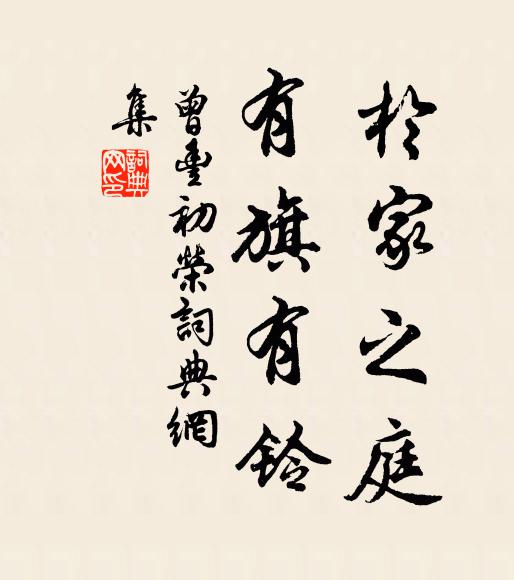 於家之庭
有旗有鈴
曾豊初榮詞典網
集
詞典
网印